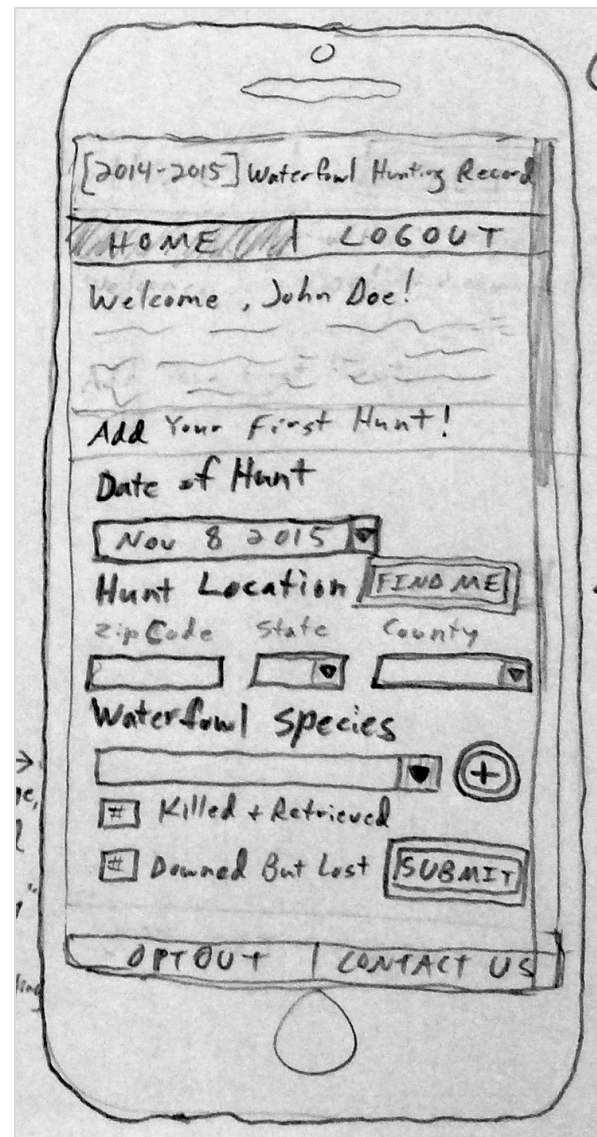 [2014-2015] Waterfowl Hunting Record
HOME | LOGOUT
Welcome, John Doe!
Add Your First Hunt!
Date of Hunt
Nov 8 2015
Hunt Location FIND ME
Zip Code State County
Waterfowl Species
+
# Killed + Retrieved
# Downed But Lost SUBMIT
OPT OUT | CONTACT US